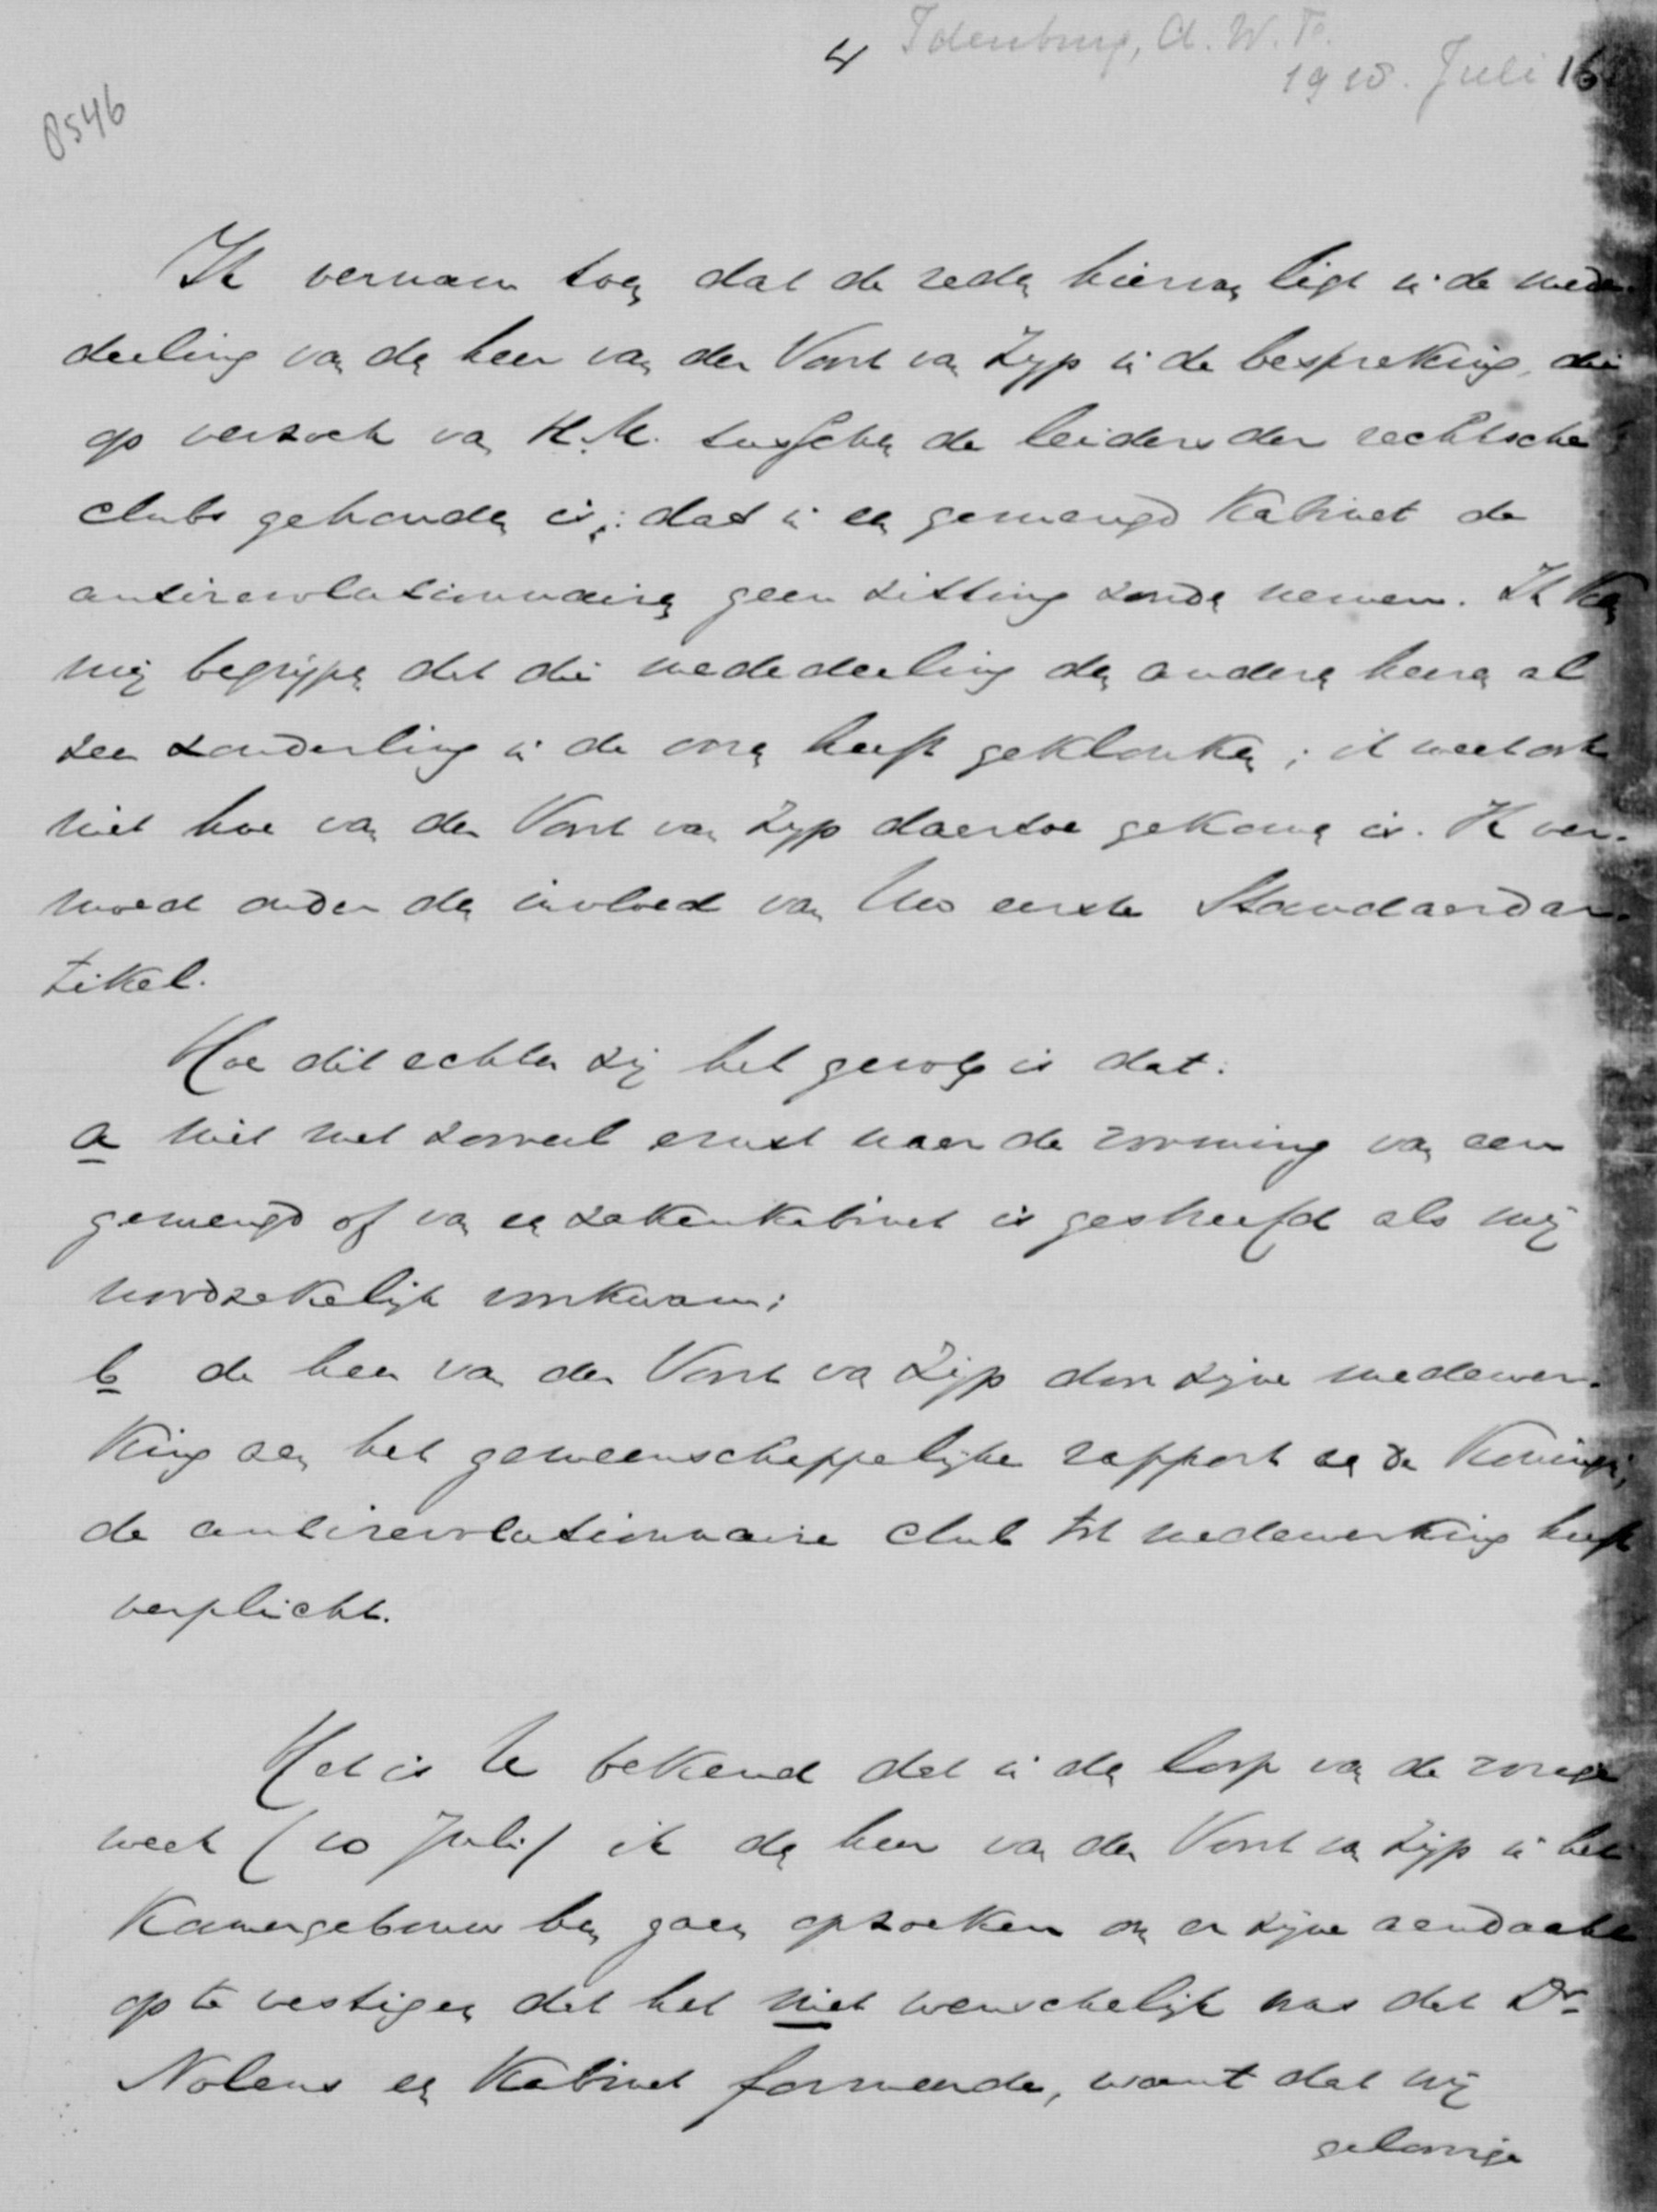 4 Idenburg, A. W. F.
1918. Juli 16
8546
Ik vernam toen dat de reden hiervan ligt in de mede-
deeling van den heer van der Voort van Zyp in de bespreking, die
op verzoek van H.M. tusschen de leiders der rechtsche
clubs gehouden is: dat in een gemengd Kabinet de
antirevolutionnairen geen zitting zouden nemen. Ik kan
mij begrijpen dat die mededeeling den anderen heeren al
zeer zonderling in de ooren heeft geklonken; ik weet ook
niet hoe van der Voort van Zyp daartoe gekomen is. Ik ver-
moed onder den invloed van Uw eerste Standaardar-
tikel.
Hoe dit echter zij het gevolg is dat:
a niet met zooveel ernst naar de vorming van een
gemengd of van een zakenkabinet is gestreefd als mij
noodzakelijk voorkwam;
b de heer van der Voort van Zijp door zijne medewer-
king aan het gemeenschappelijke rapport aan de Koningin,
de antirevolutionnaire club tot medewerking heeft
verplicht.
Het is U bekend dat in den loop van de vorige
week (10 Juli) ik den heer van der Voort van Zijp in het
Kamergebouw ben gaan opzoeken om er zijne aandacht
op te vestigen dat het niet wenschelijk was dat Dr.
Nolens een Kabinet formeerde, want dat wij
geloovige